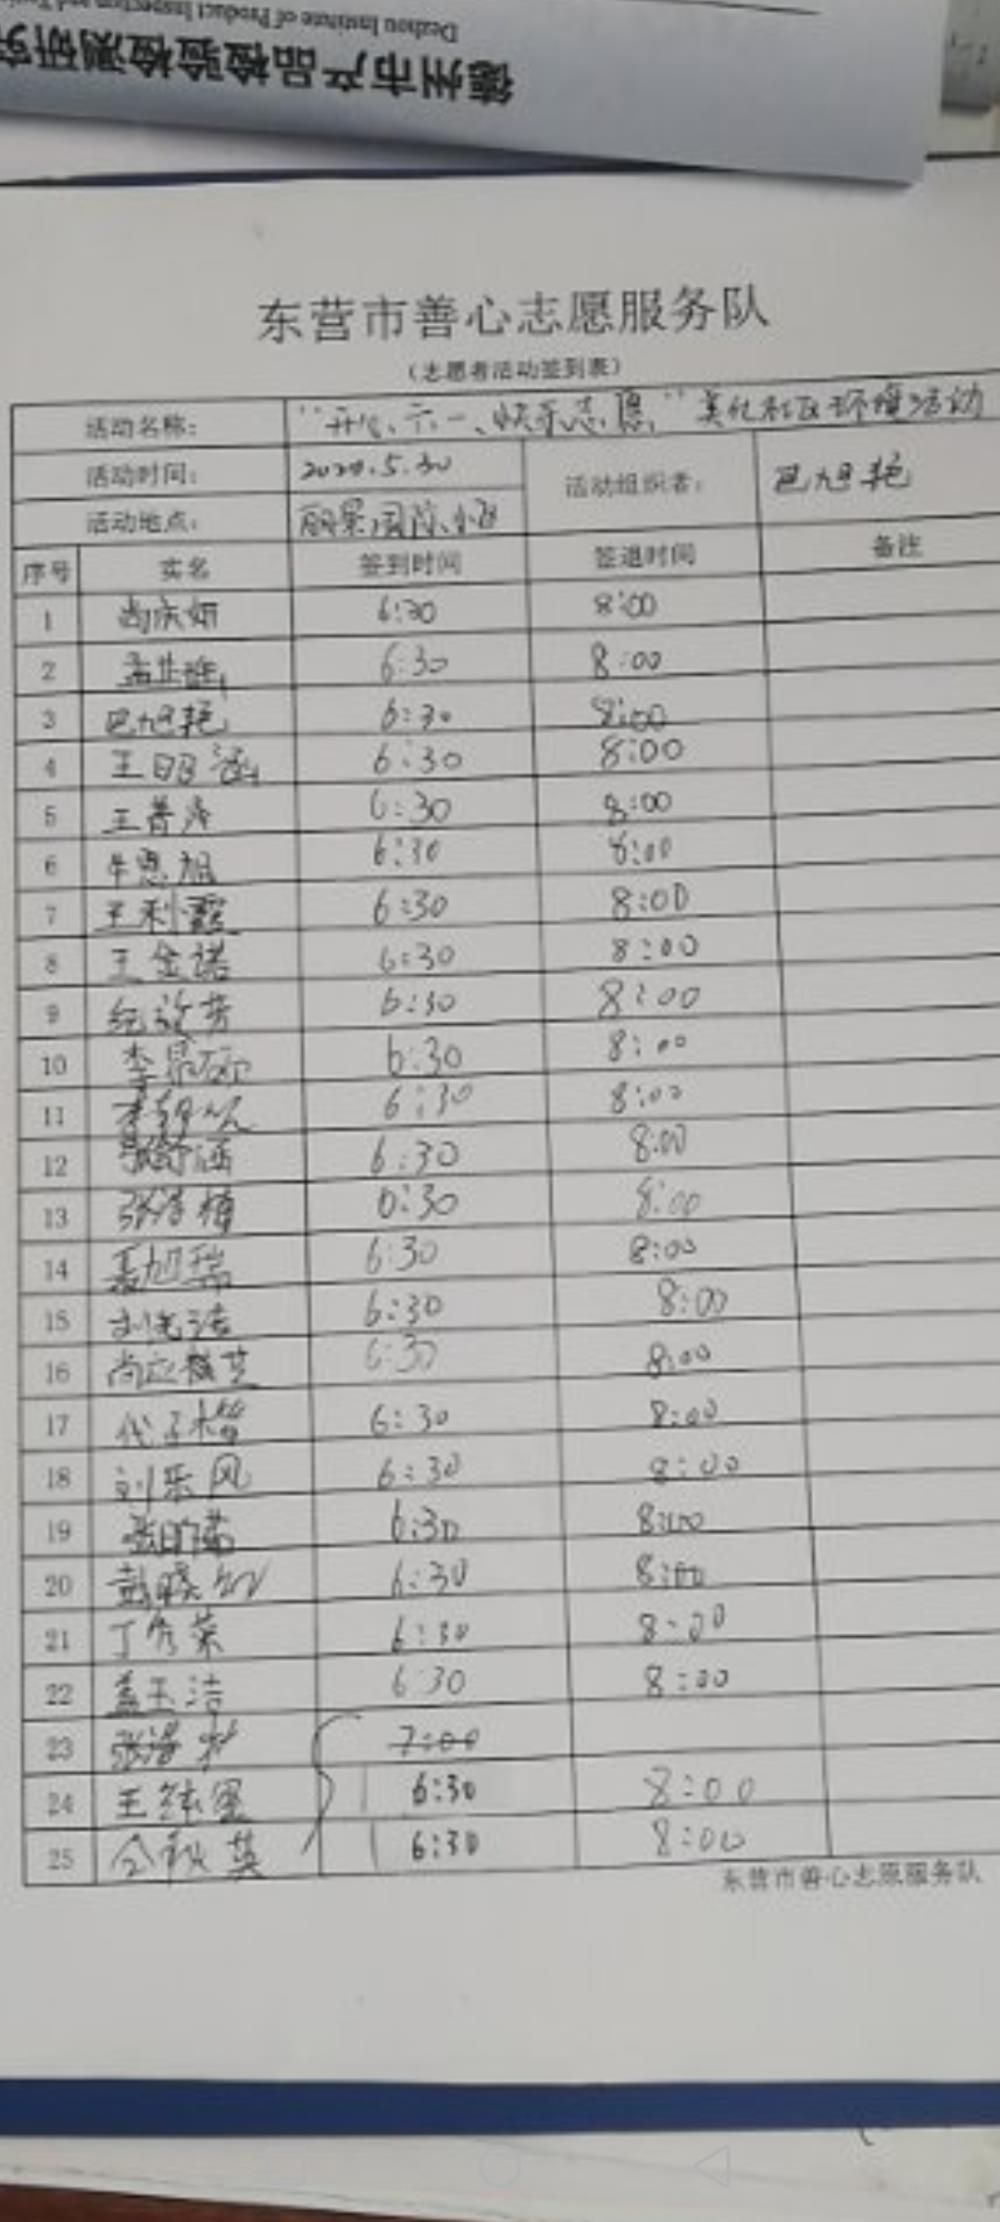 Dezhou Institute of Product Inspection and
德州市产品检验检测研究
东营市善心志愿服务队
（志愿者活动签到表）
活动名称： “开心六一、快乐志愿”美化社区环境活动
活动时间： 2020.5.30 活动组织者： 巴旭艳
活动地点： 丽景周边小区
序号 实名 签到时间 签退时间 备注
1 尚庆妍 6:30 8:00
2 6:30 8:00
3 巴旭艳 6:30 8:00
4 王明涵 6:30 8:00
5 王善 6:30 8:00
6 牛惠旭 6:30 8:00
7 王利霞 6:30 8:00
8 王金诺 6:30 8:00
9 纪 芳 6:30 8:00
10 李 6:30 8:00
11 李 6:30 8:00
12 张舒涵 6:30 8:00
13 张 6:30 8:00
14 聂旭瑞 6:30 8:00
15 刘 洁 6:30 8:00
16 尚 6:30 8:00
17 代子 6:30 8:00
18 刘乐风 6:30 8:00
19 张 6:30 8:00
20 戴晓 6:30 8:00
21 丁秀荣 6:30 8:00
22 孟玉洁 6:30 8:00
23 张 7:00
24 王 6:30 8:00
25 秋英 6:30 8:00
东营市善心志愿服务队